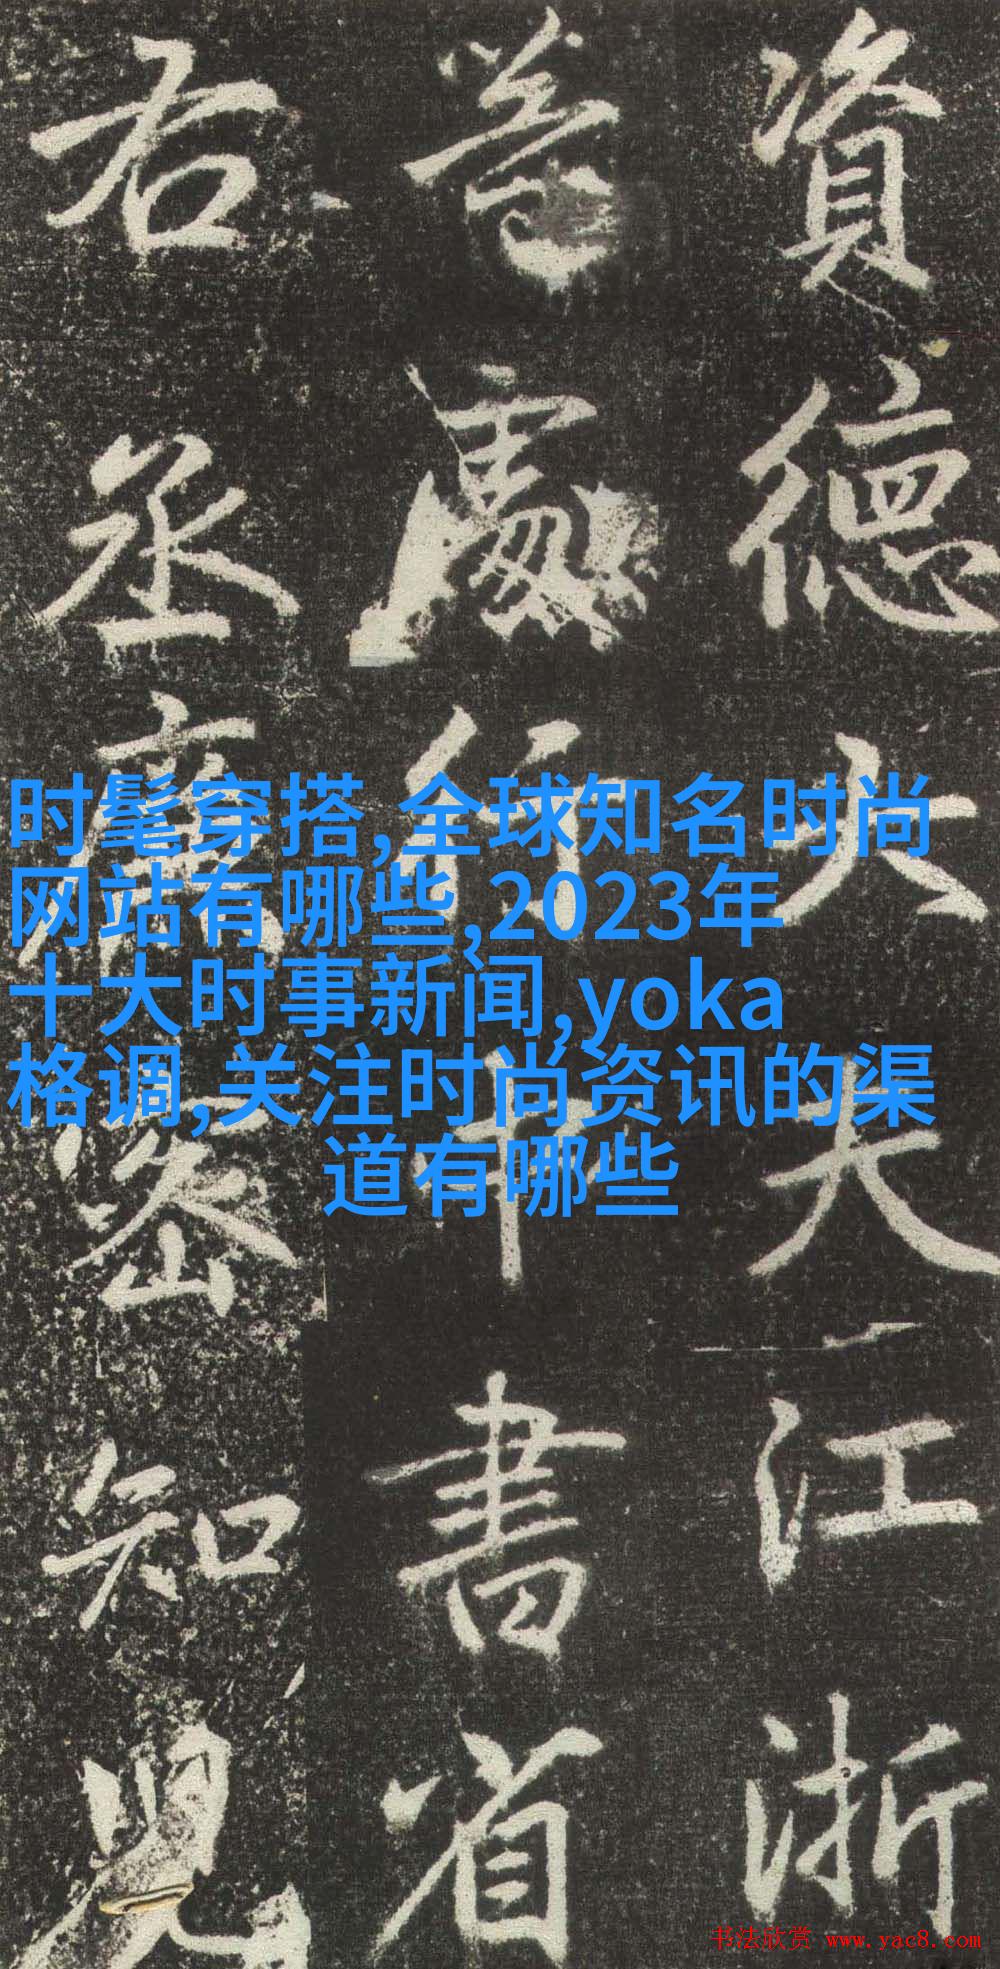 資德大夫江浙
等處行中書省
右丞廉密知兒
时髦穿搭,全球知名时尚
网站有哪些,2023年
十大时事新闻,yoka
格调,关注时尚资讯的渠
道有哪些
书法欣赏 www.yac8.com